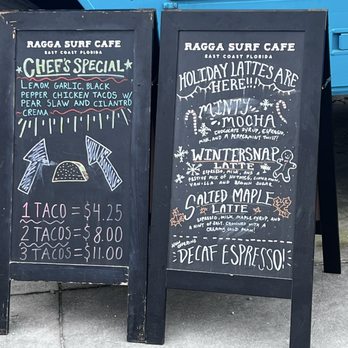 RAGGA SURF CAFE
EAST COAST FLORIDA
CHEF'S SPECIAL
LEMON, GARLIC, BLACK
PEPPER CHICKEN TACOS W/
PEAR SLAW AND CILANTRO
CREMA
1 TACO = $4.25
2 TACOS = $8.00
3 TACOS = $11.00
RAGGA SURF CAFE
EAST COAST FLORIDA
HOLIDAY LATTES ARE
HERE!!!
MINTY
MOCHA
CHOCOLATE SYRUP, ESPRESSO,
MILK, AND A PEPPERMINT TWIST!
WINTERSNAP
LATTE
ESPRESSO, MILK, AND
FESTIVE MIX OF NUTMEG, CINNAMON
VANILLA AND BROWN SUGAR
SALTED MAPLE
LATTE
ESPRESSO, MILK, MAPLE SYRUP, AND
A HINT OF SALT, CROWNED WITH A
CREAMY COLD FOAM!
DECAF ESPRESSO!